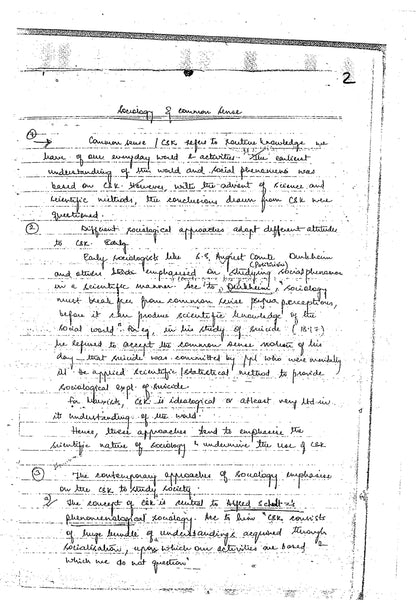 2
Sociology & Common Sense
①→ Common sense / CSK refers to routine knowledge we
have of our everyday world & activities. The earliest
understanding of the world and social phenomena was
based on CSK. However, with the advent of science and
scientific methods, the conclusions drawn from CSK were
questioned.
② Different sociological approaches adopt different attitudes
to CSK. Early
Early sociologists like August Comte Durkheim
(positivism)
and others emphasised on studying social phenomenon
in a scientific manner. Acc to, Durkheim, "sociology
must break free from common sense perceptions,
before it can produce scientific knowledge of the
social world". For eg, in his study of suicide (1897)
he refused to accept the common sense notion of his
day - that suicide was committed by ppl who were mentally
ill. be applied scientific/statistical method to provide
sociological expl. of suicide.
For Marxist, CSK is ideological or atleast very ltd in
it understanding of the world.
Hence, these approaches tend to emphasise the
scientific nature of sociology & undermine the use of CSK
③ The contemporary approaches of sociology emphasise
on the CSK to study society.
The concept of CSK is central to Alfred Schutz's
phenomenological sociology. Acc to him "CSK consists
of huge bundle of understandings acquired through
socialisation, upon which our activities are based
which we do not question"